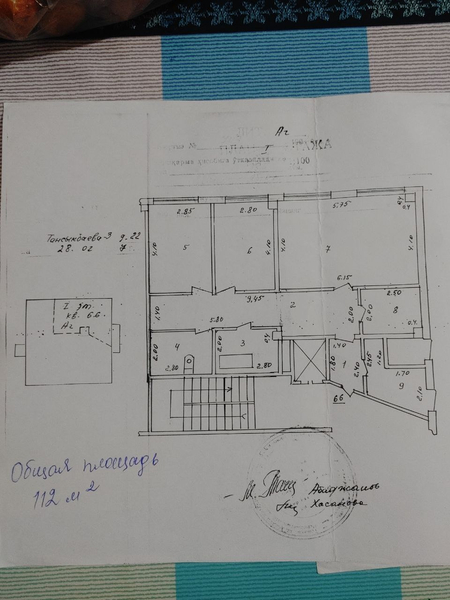 Аг
I
100
Тансыкбаева 3 д. 22
28. 02
I эт.
кв. 66
Аг
2.85
2.80
5.75
0.4
0.4
4.10
5
4.10
6
4.10
7
4.10
6.15
9.45
1.40
5.80
2
2.00
2.00
2.50
8
0.4
2.00
4
2.80
3
0.4
2.80
1.40
1.80
1
2.40
2.45
1.20
1.70
9
2.10
66
Общая площадь
112 м²
Хасанова